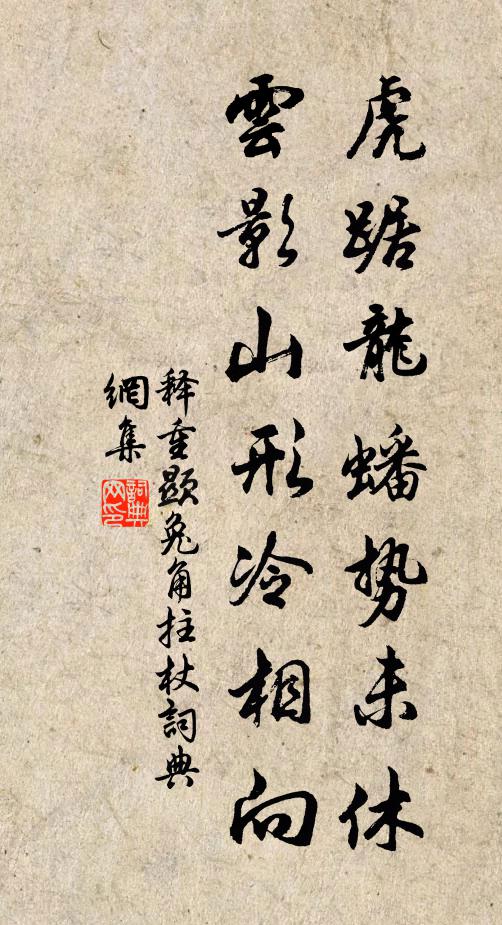 虎踞龍蟠势未休
雲影山形冷相向
释重顯兔角拄杖詞典
網集
詞典网印